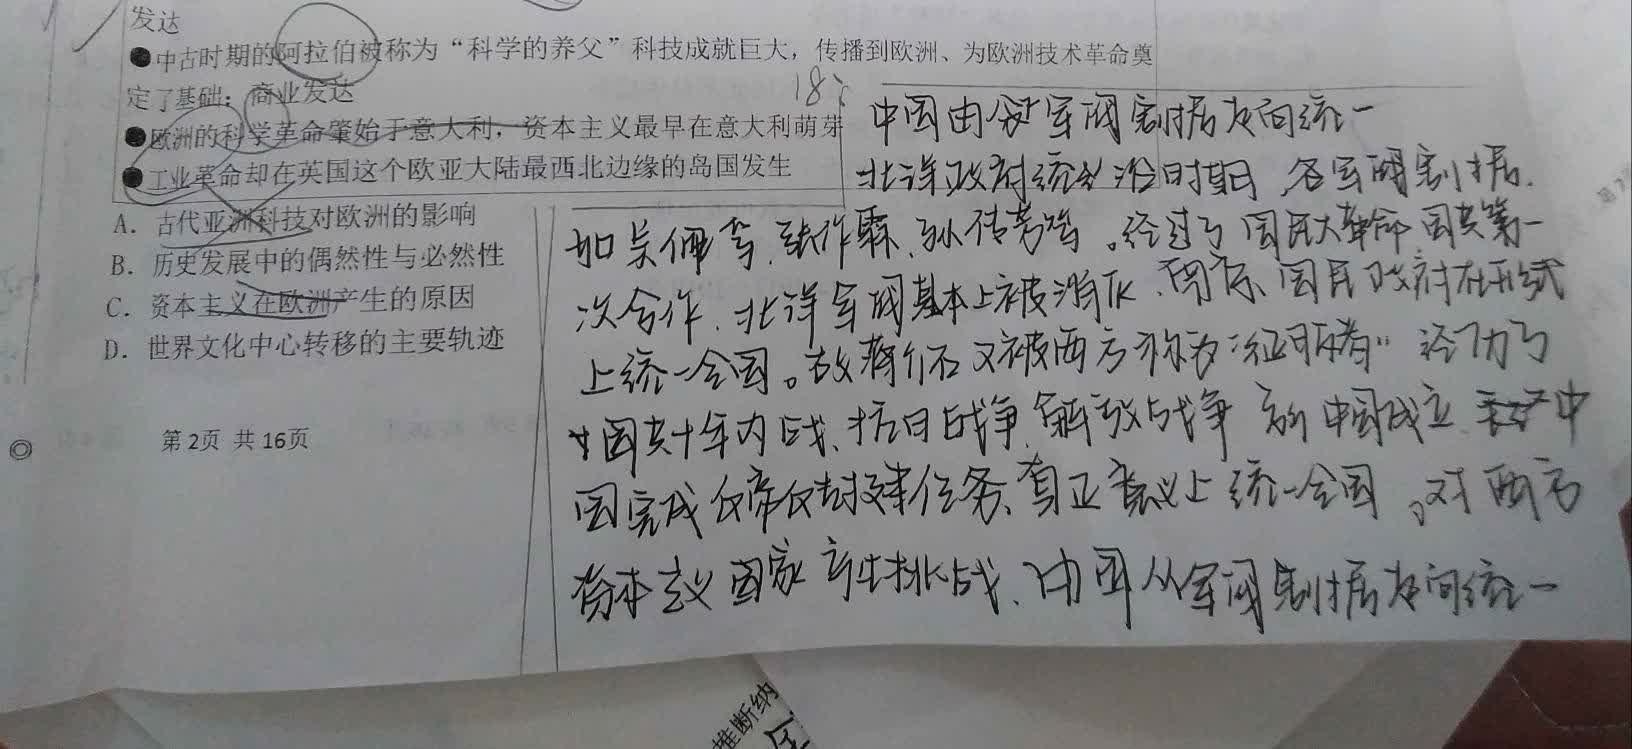 发达
●中古时期的阿拉伯被称为“科学的养父”科技成就巨大，传播到欧洲、为欧洲技术革命奠
定了基础；商业发达
●欧洲的科学革命肇始于意大利，资本主义最早在意大利萌芽
●工业革命却在英国这个欧亚大陆最西北边缘的岛国发生
A. 古代亚洲科技对欧洲的影响
B. 历史发展中的偶然性与必然性
C. 资本主义在欧洲产生的原因
D. 世界文化中心转移的主要轨迹
第2页 共16页
18
中国由军阀割据走向统一
北洋政府统治时期，各军阀割据.
如吴佩孚、张作霖、孙传芳等。经过了国民大革命 国共第一
次合作、北洋军阀基本上被消灭、南京国民政府在形式
上统一全国。故蒋介石又被西方称为“征服者”经历了
国共十年内战、抗日战争、解放战争 新中国成立 中
国完成反帝反封建任务、真正意义上统一全国。对西方
资本主义国家产生挑战、中国从军阀割据走向统一
推断纳